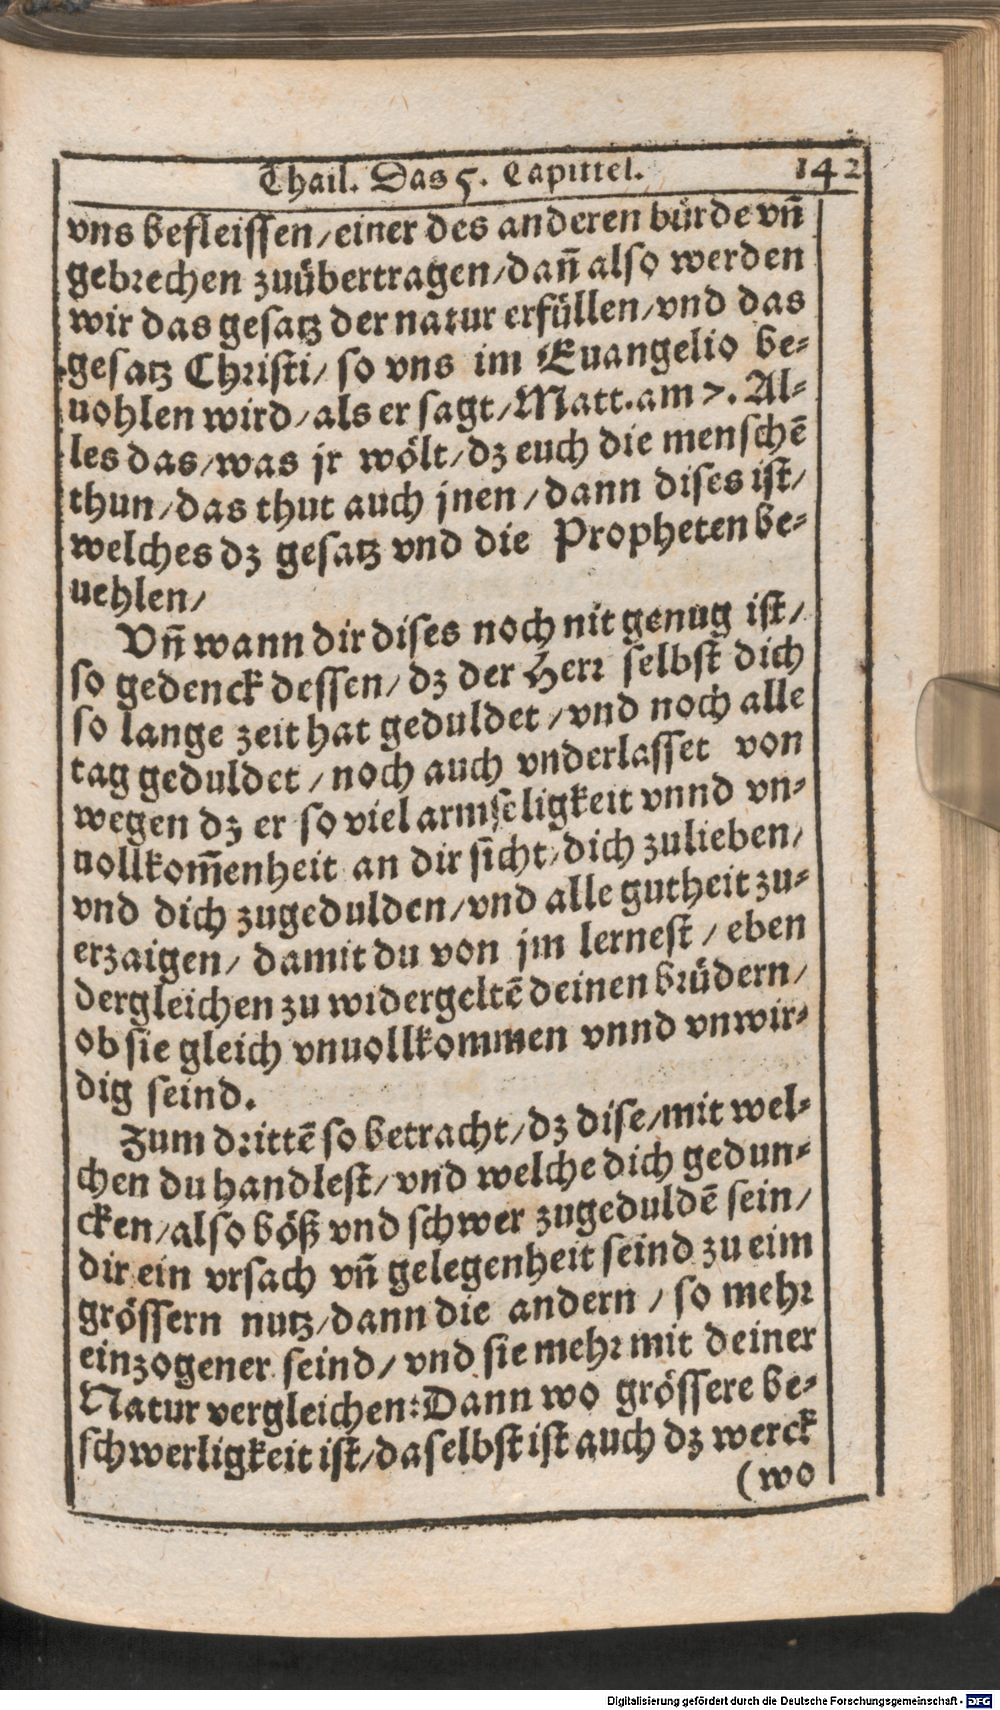 Thail. Das 5. Capittel. 142
vns befleissen/einer des anderen bürde vñ
gebrechen zuübertragen/dañ also werden
wir das gesatz der natur erfüllen/vnd das
gesatz Christi/ so vns im Euangelio be-
uohlen wird/als er sagt/Matt.am 7. Al-
les das/was jr wölt/dz euch die menschē
thun/das thut auch jnen/dann dises ist/
welches dz gesatz vnd die Propheten be-
uehlen/
Vñ wann dir dises noch nit genug ist/
so gedenck dessen/ dz der Herr selbst dich
so lange zeit hat geduldet/vnd noch alle
tag geduldet/noch auch vnderlasset von
wegen dz er so viel armseligkeit vnnd vn-
uollkom̄enheit an dir sicht/dich zulieben/
vnd dich zugedulden/vnd alle gutheit zu-
erzaigen/ damit du von jm lernest/eben
dergleichen zu widergeltē deinen brüdern/
ob sie gleich vnuollkommen vnnd vnwir-
dig seind.
Zum drittē so betracht/dz dise/mit wel-
chen du handlest/vnd welche dich gedun-
cken/also böß vnd schwer zugeduldē sein/
dir ein vrsach vñ gelegenheit seind zu eim
grössern nutz/dann die andern/so mehr
einzogener seind/vnd sie mehr mit deiner
Natur vergleichen:Dann wo grössere be-
schwerligkeit ist/daselbst ist auch dz werck
(wo
Digitalisierung gefördert durch die Deutsche Forschungsgemeinschaft - DFG